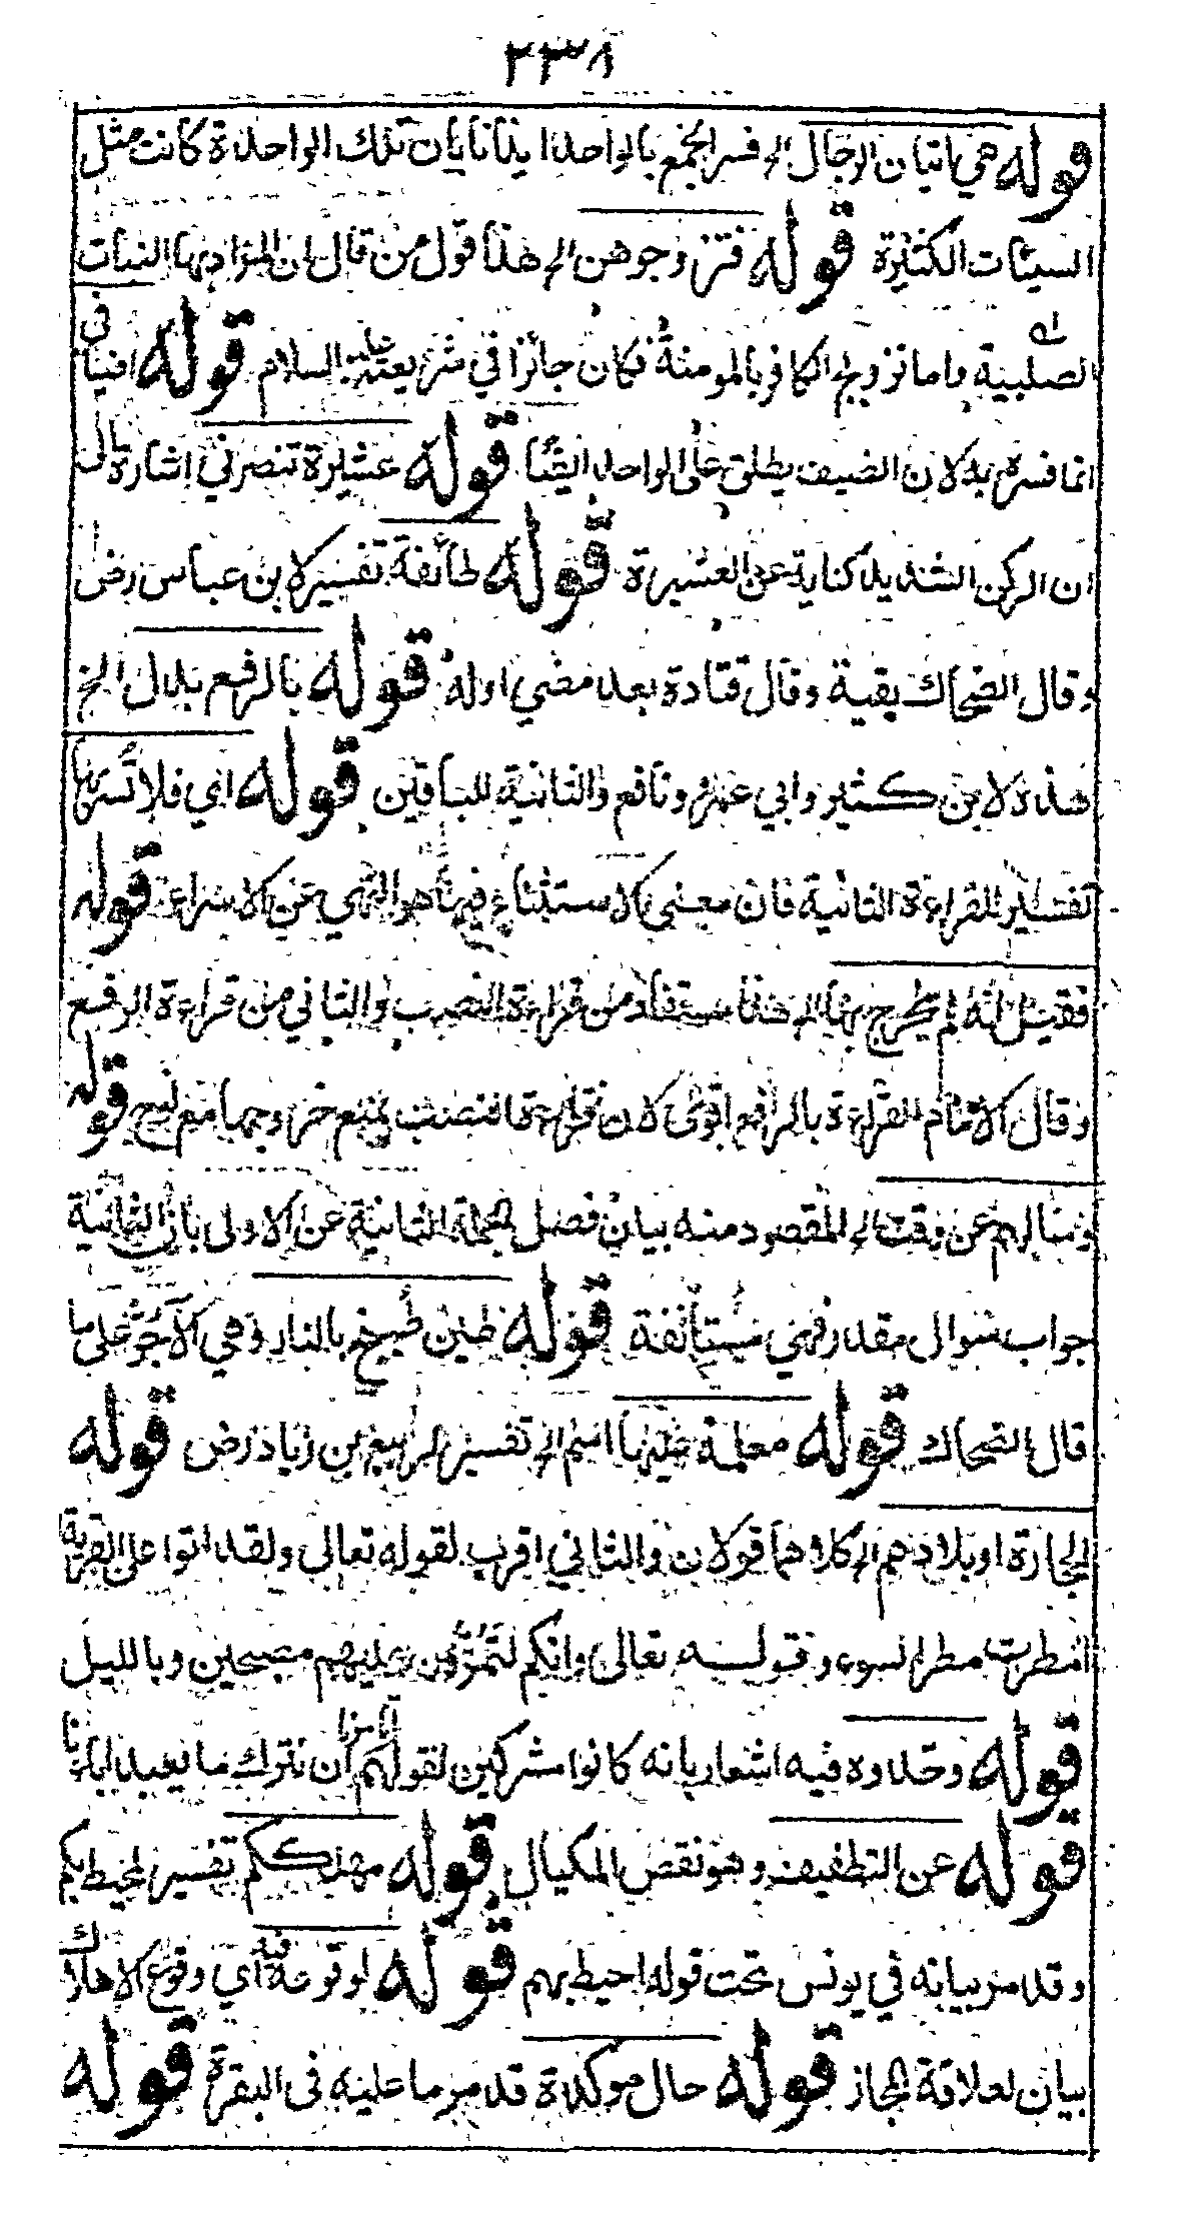 ٢٣٨
قوله هي اتيان الرجال الخ فسر الجمع بالواحد ايذانا بان تلك الواحدة كانت مثل
السيئات الكثيرة قوله فتزوجوهن الخ هذا قول من قال ان المراد بها البنات
الصلبية واما تزويج الكافر بالمومنة فكان جائزا في شريعته عليه السلام قوله اضيافي
انما فسره به لان الضيف يطلق على الواحد ايضا قوله عشيرة تنصرني اشارة الى
ان الركن الشديد كناية عن العشيرة قوله طائفة تفسير لابن عباس رض
وقال الضحاك بقية وقال قتادة بعد مضي اوله قوله بالرفع بدل الخ
هذه لابن كثير وابي عمرو ونافع والثانية للباقين قوله اي فلا تسر بها
تفسير للقراءة الثانية فان معنى الاستثناء فيها هو النهي عن الاسراء قوله
فقيل انه لم يخرج بها الخ هذا مستفاد من قراءة النصب والثاني من قراءة الرفع
وقال الامام القراءة بالرفع اقوى لان قراءة النصب تمنع خروجها مع قوله
وسالهم عن وقت الخ المقصود منه بيان فصل الجملة الثانية عن الاولى بان الثانية
جواب سوال مقدر فهي مستانفة قوله طين طبخ بالنار وهي الآجر على ما
قال الضحاك قوله معلمة عليها اسم الخ تفسير لربيع بن زياد رض قوله
الحجارة او بلادهم الخ كلاهما قولان والثاني اقرب لقوله تعالى ولقد اتوا على القرية
امطرت مطر السوء وقوله تعالى وانكم لتمرون عليهم مصبحين وبالليل
قوله وحدوه فيه اشعار بانه كانوا مشركين لقولهم ان نترك ما يعبد اباءنا
قوله عن التطفيف وهو نقص المكيال قوله مهلككم تفسير لمحيط بكم
وقد مر بيانه في يونس تحت قوله احيط بهم قوله لوقوعه فيه اي وقوع الاهلاك
بيان لعلاقة المجاز قوله حال موكدة قد مر ما عليه في البقرة قوله